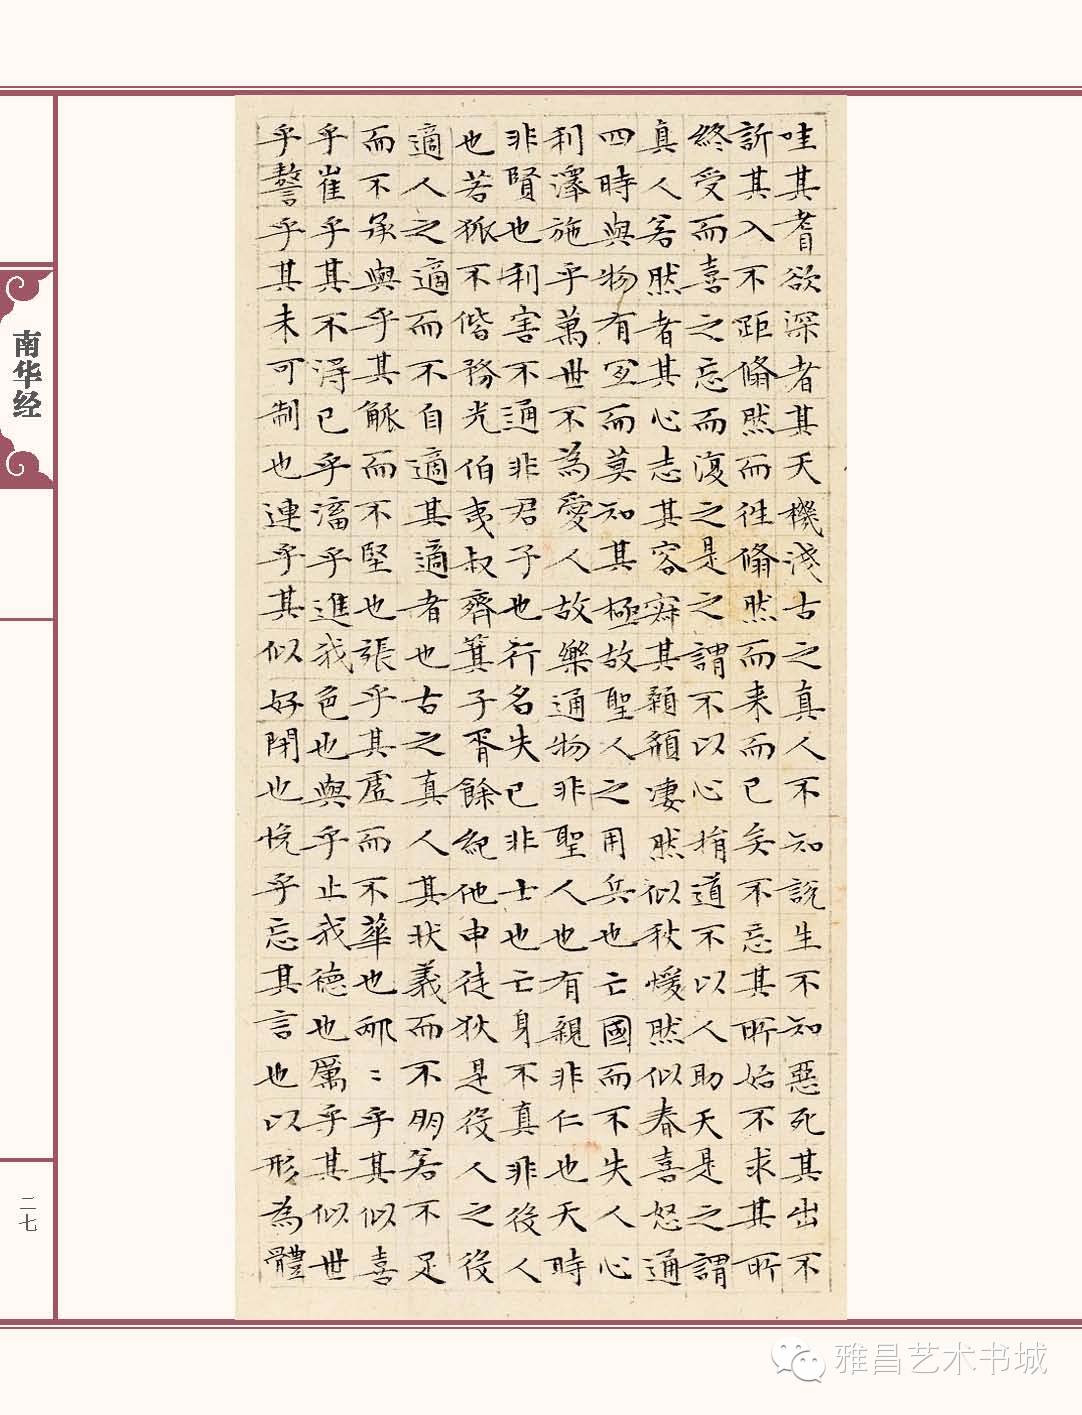 哇其耆欲深者其天機淺古之真人不知說生不知惡死其出不
訢其入不距翛然而往翛然而来而已矣不忘其所始不求其所
終受而喜之忘而復之是之謂不以心捐道不以人助天是之謂
真人若然者其心志其容寂其顙頯凄然似秋煖然似春喜怒通
四時與物有宜而莫知其極故聖人之用兵也亡國而不失人心
利澤施乎萬世不為愛人故樂通物非聖人也有親非仁也天時
非賢也利害不通非君子也行名失已非士也亡身不真非役人
也若狐不偕務光伯夷叔齊箕子胥餘紀他申徒狄是役人之役
適人之適而不自適其適者也古之真人其狀義而不朋若不足
而不承與乎其觚而不堅也張乎其虛而不華也邴〻乎其似喜
乎崔乎其不得已乎滀乎進我色也與乎止我德也厲乎其似世
乎謷乎其未可制也連乎其似好閉也悗乎忘其言也以形為體
南华经
二七
雅昌艺术书城